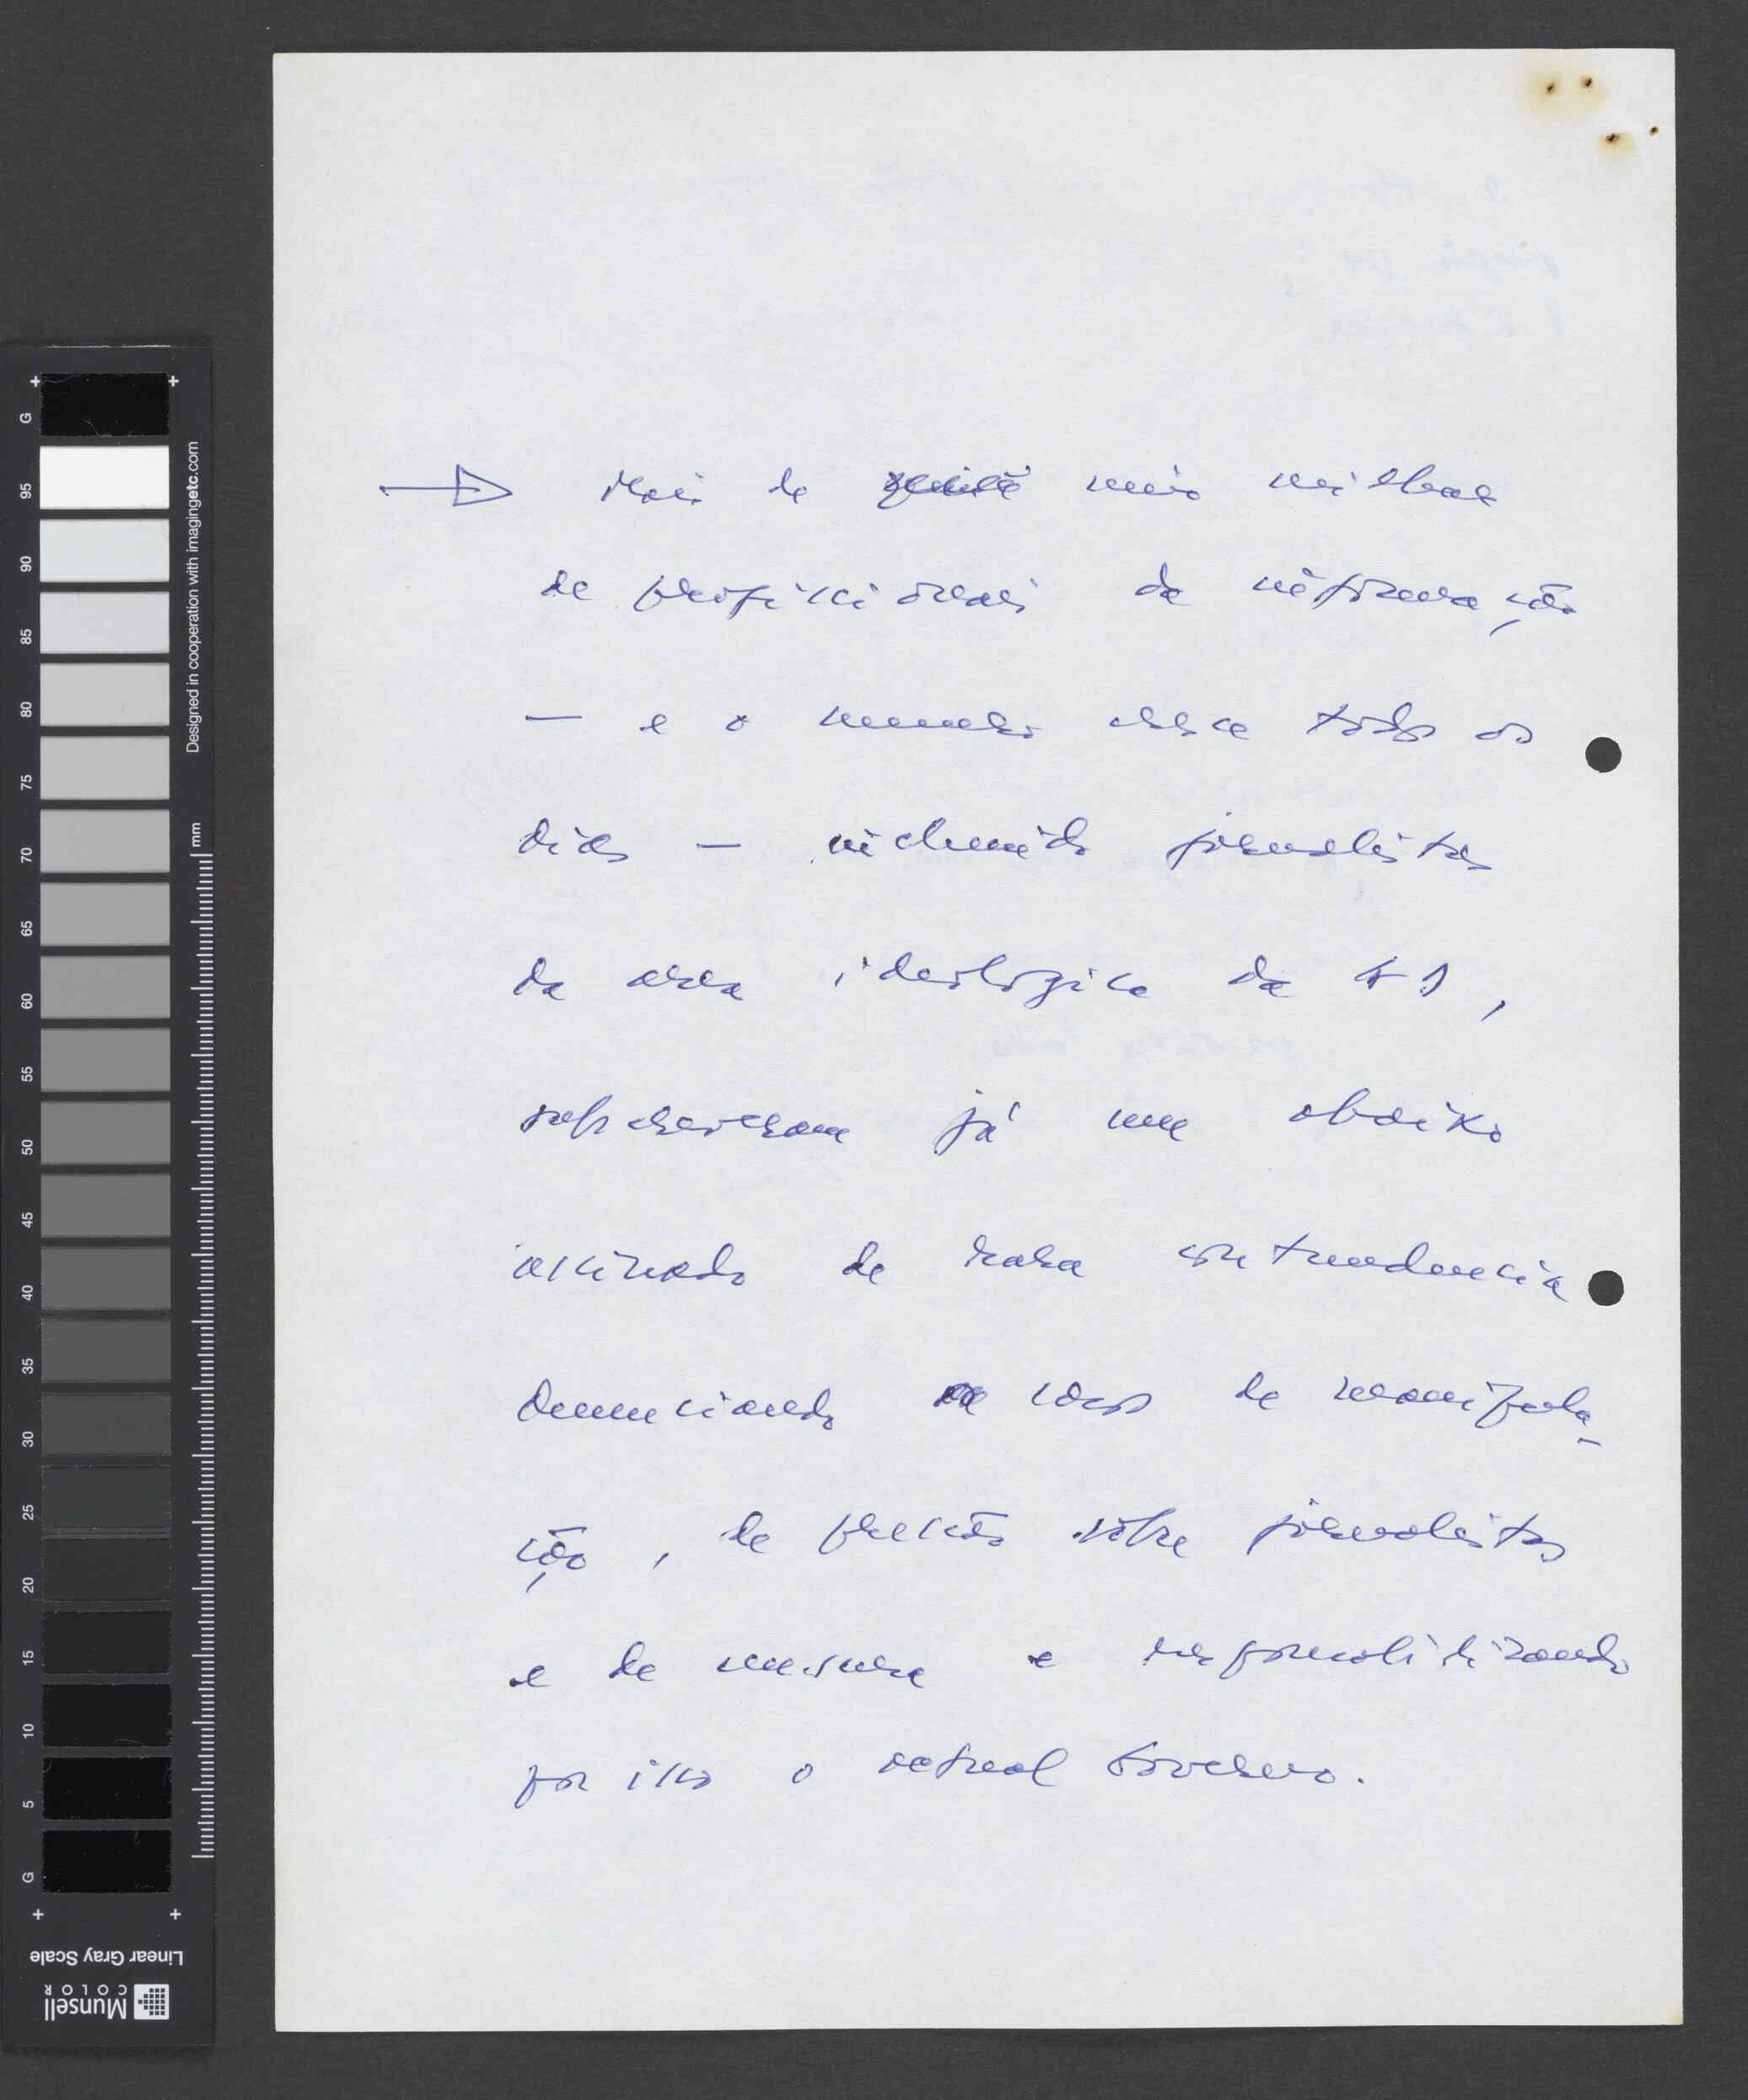 Mais de meio milhar
de profissionais da informação
— e o numero cresce todos os
dias — incluindo jornalistas
da area ideologica da AD,
subscreveram já um abaixo
assinado de rara contundencia
denunciando casos de manipula-
ção, de pressão sobre jornalistas
e de censura e responsabilizando
por isso o actual Governo.
G
95
90
85
80
75
70
65
60
55
50
45
40
35
30
25
20
15
10
5
G
Designed in cooperation with imagingetc.com
mm
Linear Gray Scale
Munsell
COLOR